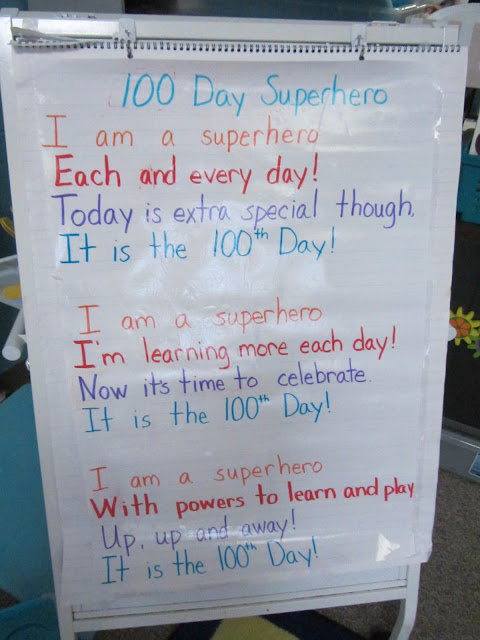 100 Day Superhero
I am a superhero
Each and every day!
Today is extra special though.
It is the 100th Day!
I am a superhero
I'm learning more each day!
Now it's time to celebrate.
It is the 100th Day!
I am a superhero
With powers to learn and play
Up, up and away!
It is the 100th Day!